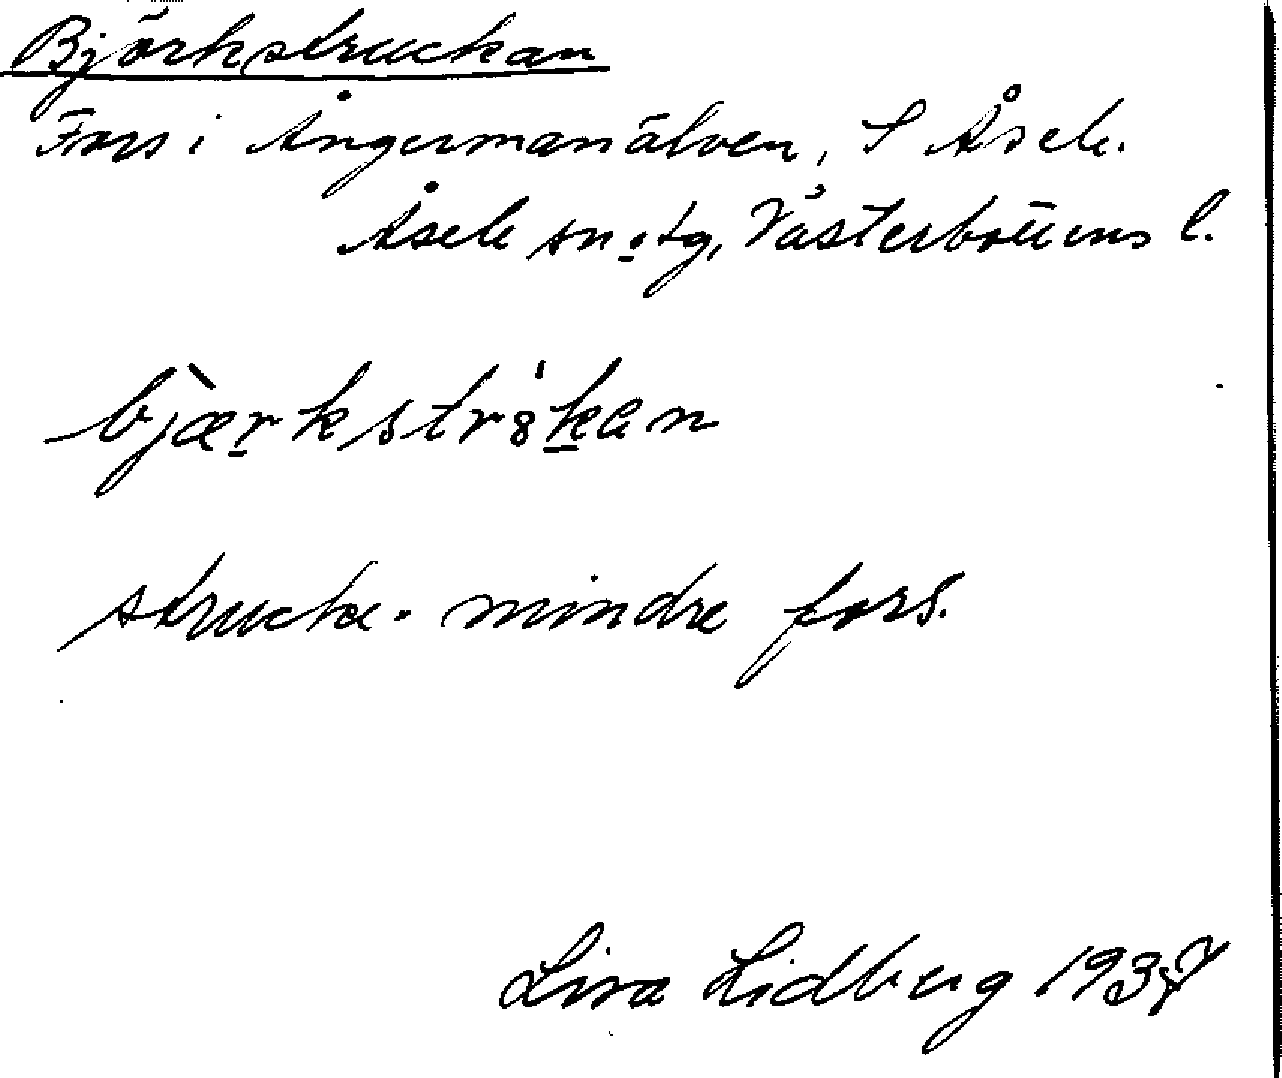 Björkstruckan
Fors i Ångermanälven, S Åsele.
Åsele sn o tg, Västerbottens l.
bjærkstrȣkan
strucka - mindre fors.
Lisa Lidberg 1937